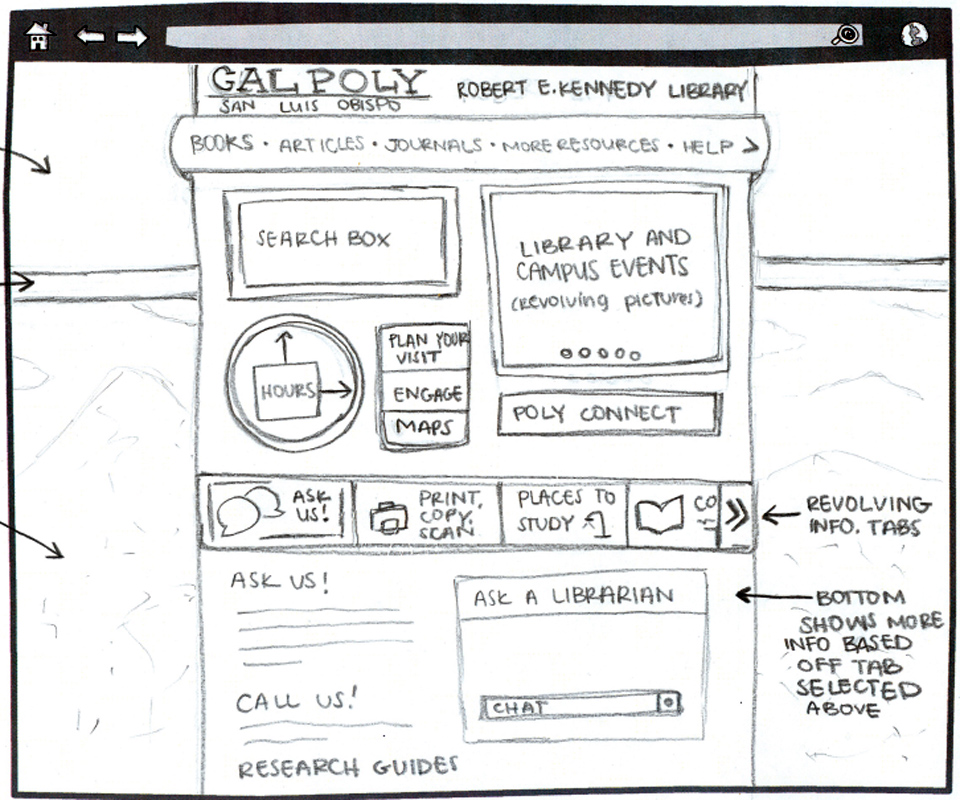 CAL POLY
SAN LUIS OBISPO
ROBERT E. KENNEDY LIBRARY
BOOKS • ARTICLES • JOURNALS • MORE RESOURCES • HELP >
SEARCH BOX
LIBRARY AND
CAMPUS EVENTS
(revolving pictures)
HOURS
PLAN YOUR
VISIT
ENGAGE
MAPS
POLY CONNECT
ASK
US!
PRINT,
COPY,
SCAN
PLACES TO
STUDY
CO
REVOLVING
INFO. TABS
ASK US!
ASK A LIBRARIAN
CHAT
BOTTOM
SHOWS MORE
INFO BASED
OFF TAB
SELECTED
ABOVE
CALL US!
RESEARCH GUIDES